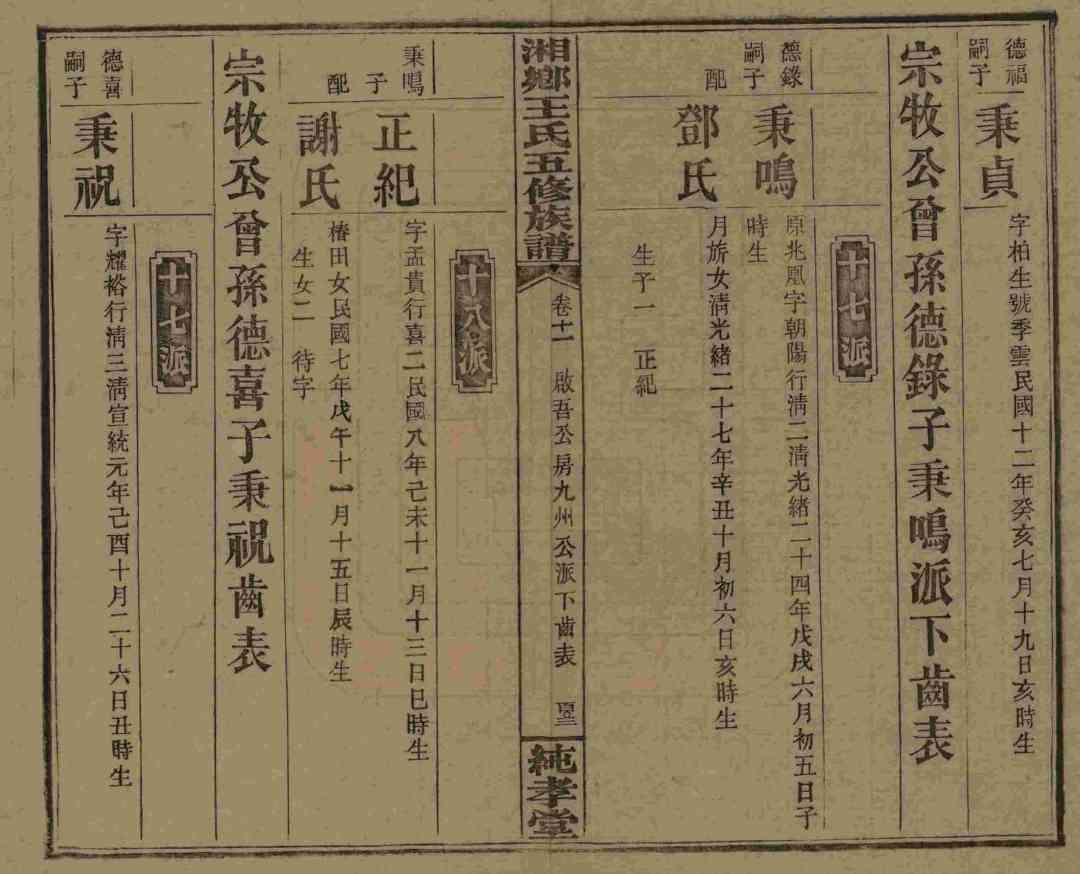 德福
嗣子
秉貞
字柏生號季雲民國十二年癸亥七月十九日亥時生
宗牧公曾孫德錄子秉鳴派下齒表
十七派
德錄
嗣子
秉鳴
原兆凰字朝陽行清二清光緒二十四年戊戌六月初五日子
時生
配
鄧氏
月旂女清光緒二十七年辛丑十月初六日亥時生
生子一 正紀
湘鄉王氏五修族譜
卷十一
啟吾公房九州公派下齒表
純孝堂
十八派
秉鳴
子
正紀
字孟貴行喜二民國八年己未十一月十三日巳時生
配
謝氏
椿田女民國七年戊午十一月十五日辰時生
生女二 待字
宗牧公曾孫德喜子秉祝齒表
十七派
德喜
嗣子
秉祝
字耀裕行清三清宣統元年己酉十月二十六日丑時生